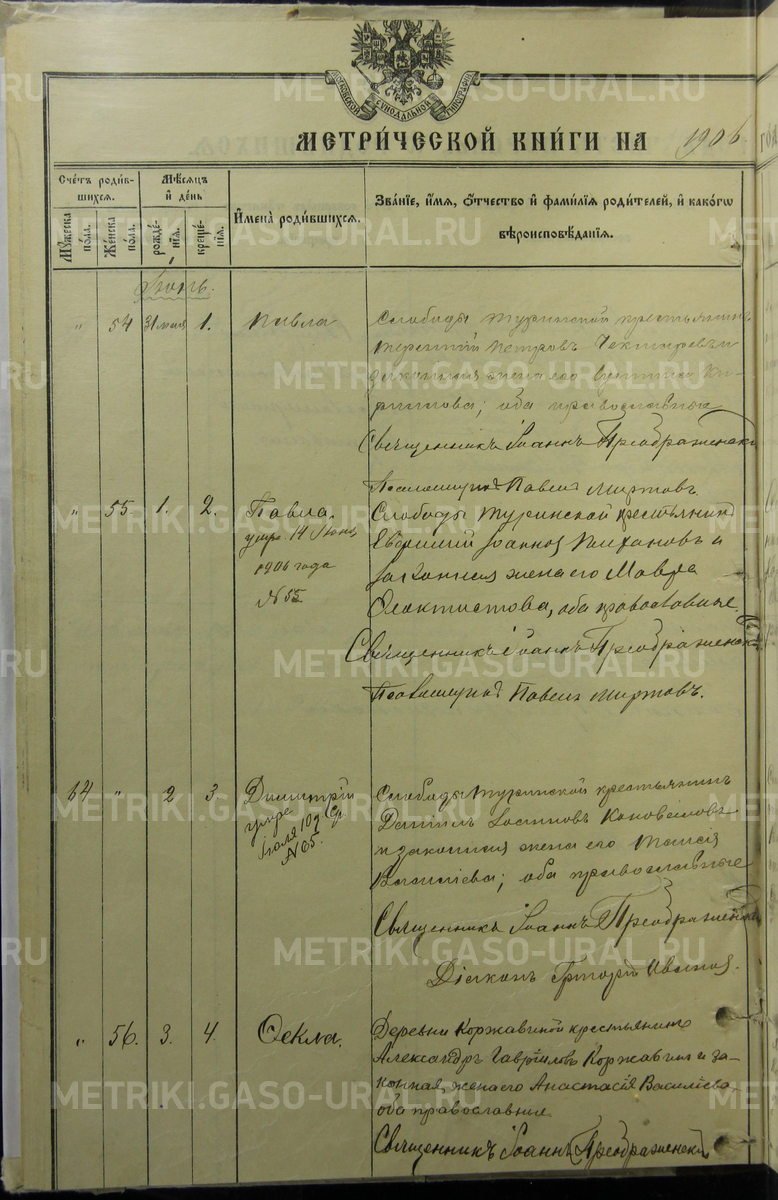 МОСКОВСКОЙ СУНОДАЛЬНОЙ ТИПОГРАФІИ
МЕТРИ́ЧЕСКОЙ КНИ́ГИ НА 1906 год
Сче́тъ роди́в-
шихся.
Мѣсяцъ
и́ де́нь
Му́жеска по́ла.
Же́нска по́ла.
рожде́-
нія.
креще́-
нія.
И́мена̀ роди́вшихся.
Зва́ніе, и́мя, ѻ́тчество и́ фами́лія роди́телей, и́ како́гѡ
вѣроисповѣ́данія.
Іюнь.
" 54 31 мая 1. Павла
Слободы Туринской крестьянинъ
Терентій Петровъ и
законная жена его
оба православные
Священникъ Іоаннъ Преображенскій
Псаломщикъ Павелъ Миртовъ.
" 55 1. 2. Павла.
умр. 14 Іюня
1906 года
№ 55
Слободы Туринской крестьянинъ
Евфимій Іоанновъ и
законная жена его Мавра
Феоктистова, оба православные.
Священникъ Іоаннъ Преображенскій
Псаломщикъ Павелъ Миртовъ.
64 " 2 3. Димитрій
умре
Іюля 10 д.
№ 65.
Слободы Туринской крестьянинъ
Даніилъ Коноваловъ
и законная жена его Таисія
оба православные
Священникъ Іоаннъ Преображенскій
Діаконъ Григорій Ивановъ.
" 56. 3. 4. Фекла.
Деревни Коржавиной крестьянинъ
Александръ Гавріиловъ Коржавинъ и за-
конная жена его Анастасія Василіева
оба православные
Священникъ Іоаннъ Преображенскій
METRIKI.GASO-URAL.RU